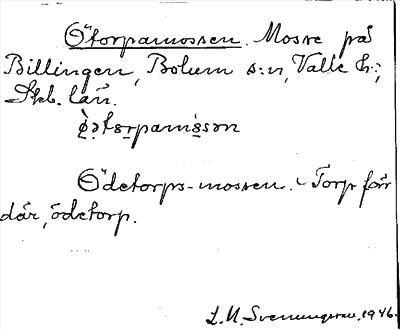 Ötorpamossen. Mosse på
Billingen, Bolum s:n, Valle h:,
Skb. län.
Ödetorps-mossen. - Torp förr
där, ödetorp.
L. M. Svenungsson, 1946.